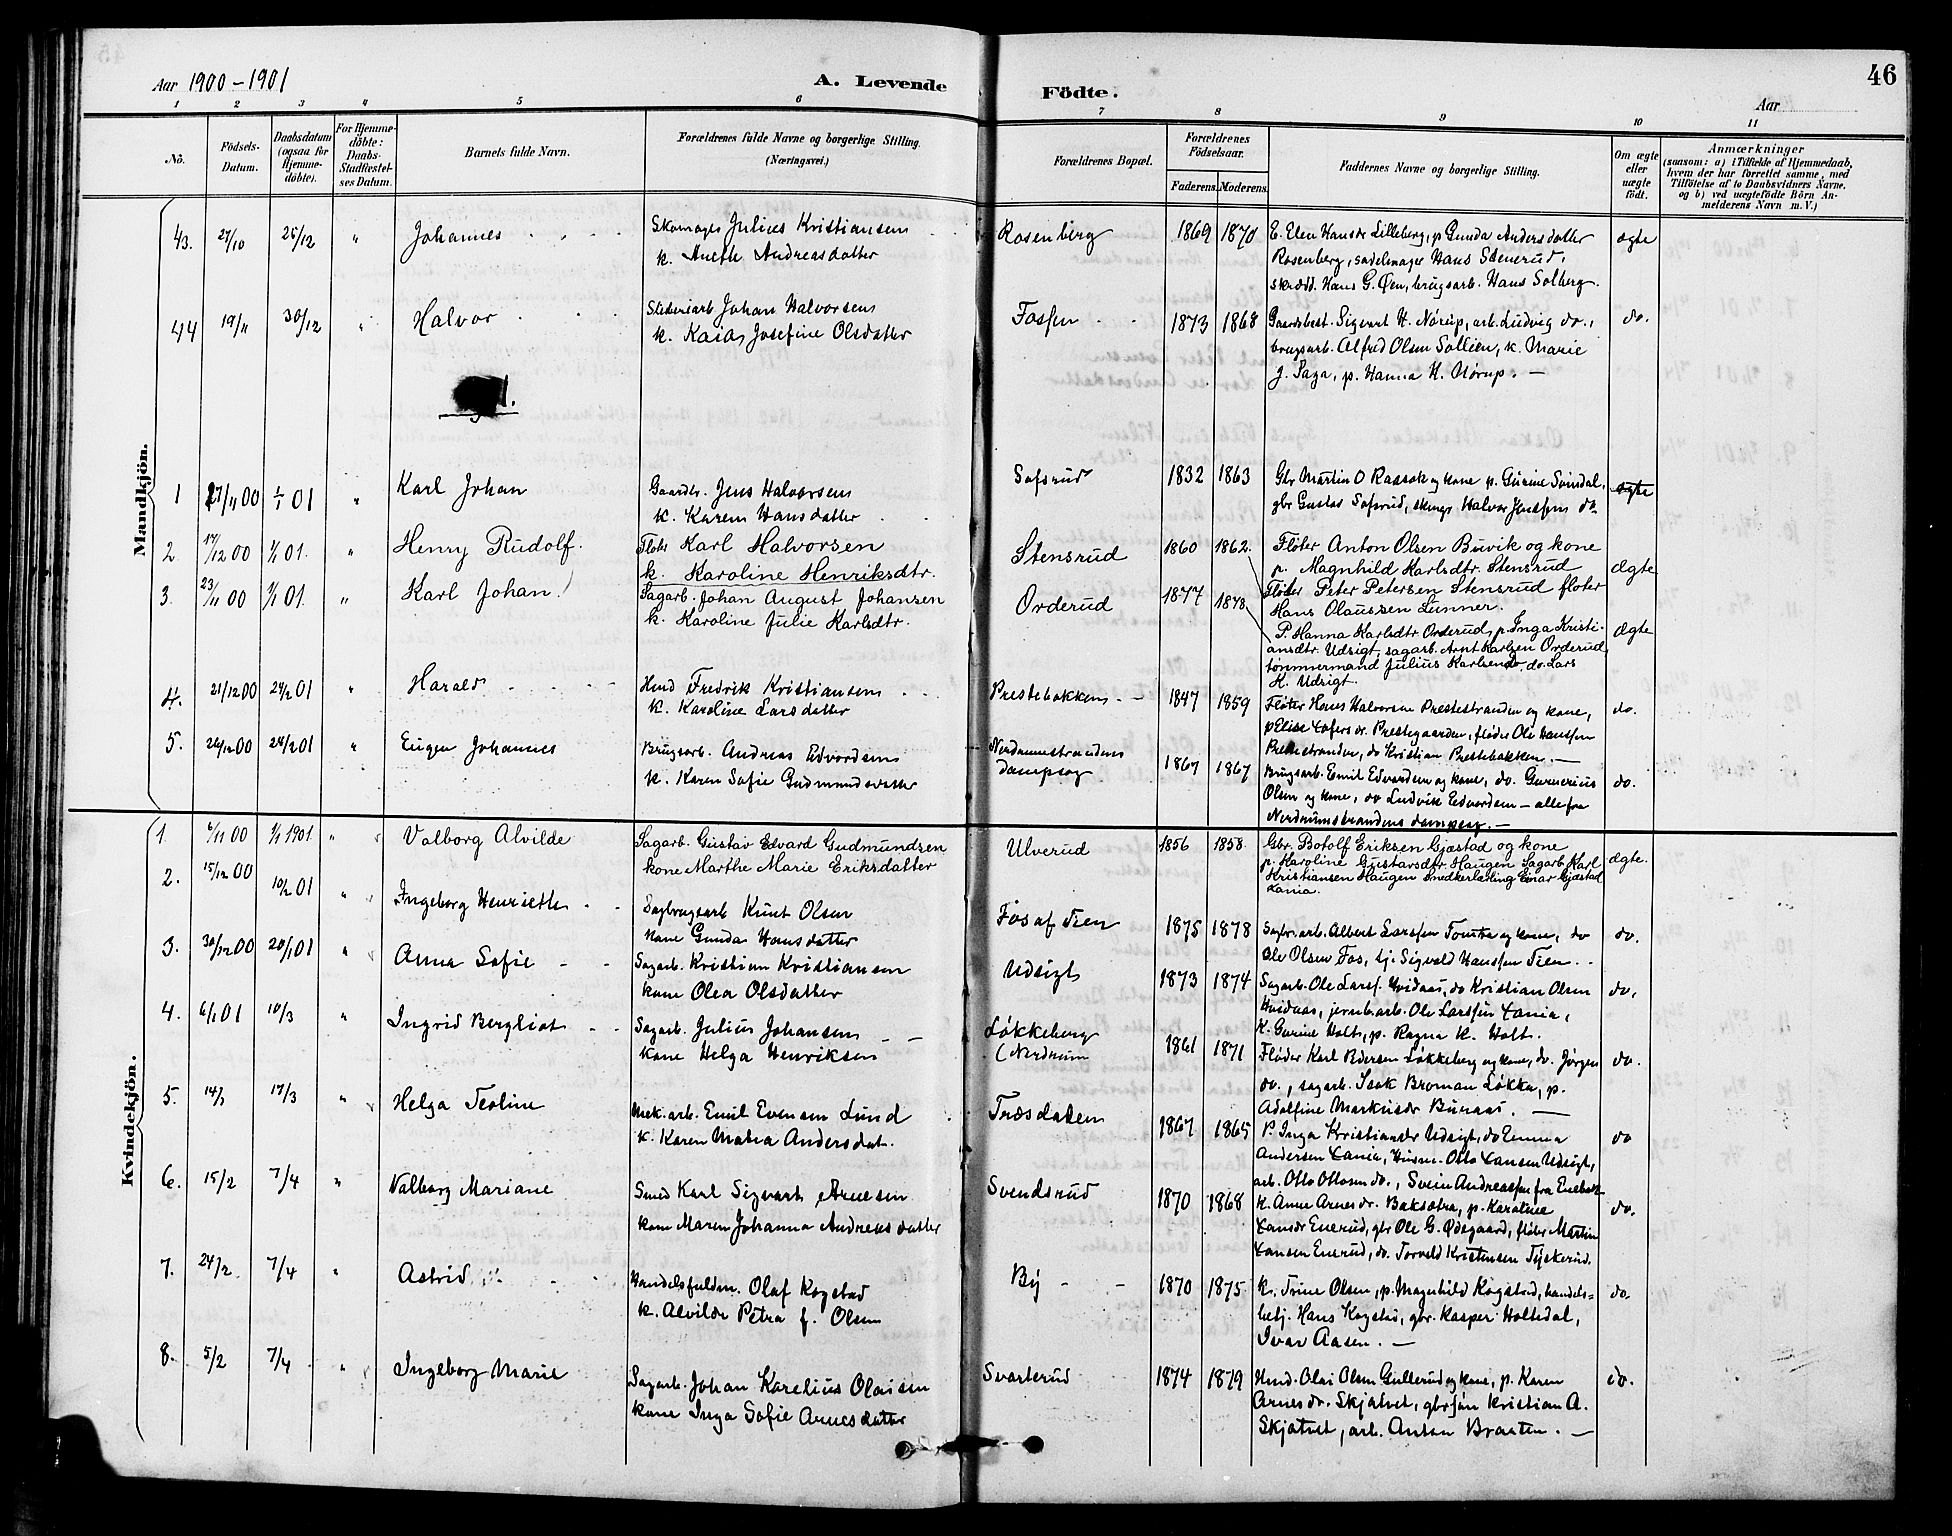 46
Aar 1900-1901
A. Levende Födte.
Aar
1 2 3 4 5 6 7 8 9 10 11
No.
Födsels-Datum.
Daabsdatum (ogsaa for Hjemme-döbte).
For Hjemme-döbte: Daabs-Stadfæstel-ses Datum.
Barnets fulde Navn.
Forældrenes fulde Navne og borgerlige Stilling. (Næringsvei.)
Forældrenes Bopæl.
Forældrenes Födselsaar.
Faderens. Moderens.
Faddernes Navne og borgerlige Stilling.
Om ægte eller uægte födt.
Anmærkninger
(saasom: a) i Tilfælde af Hjemmedaab, hvem der har forrettet samme, med Tilföielse af to Daabsvidners Navne, og b) ved uægtefödte Börn An-melderens Navn m. V.)
Mandkjön.
43. 27/10 25/12 " Johannes
Skomager Julius Kristiansen
k. Anethe Andreasdatter
Rosenberg 1869 1870
E. Elen Hansdr Lilleberg, p Gunda Andersdatter
Rosenberg, sadelmager Hans Stenerud,
skrædd. Hans G. Øen, brugsarb. Hans Solberg.
ægte
44 19/11 30/12 " Halvor
Johan Halvorsen
k. Kaia Josefine Olsdatter
Fossen 1873 1868
Gaardbest. Sigvart H. Nórup, arb. Ludvig do.,
brugsarb. Alfred Olsen Sollien, k. Marie
J. Saga, p. Hanna H. Nórup. —
do.
1 21/11 00 1/1 01 " Karl Johan
Gaardbr. Jens Halvorsen
k. Karen Hansdatter
Sofsrud 1832 1863
Gbr Martin O Rassok og kone p. Gurine Svindal,
gbr Gustav Sofsrud, Halvor Jensen do
ægte
2. 17/12 00 1/1 01. " Henry Rudolf.
Fløter Karl Halvorsen
k. Karoline Henriksdtr.
Stensrud 1860 1862.
Fløter Anton Olsen Buvik og kone
p. Magnhild Karlsdtr. Stensrud
Fløter Peter Petersen Stensrud fløter
Hans Olaussen Lunner.
Ægte
3. 23/11 00 1/1 01. " Karl Johan
Sagarb. Johan August Johansen
k. Karoline Julie Karlsdtr.
Orderud 1877 1878
P. Hanna Karlsdtr Orderud, p. Inga Kristi-
ansdtr. Udsigt, sagarb. Arnt Karlsen Orderud,
tømmermand Julius Karlsen do do. Lars
K. Udsigt.
Ægte
4. 21/12 00 24/2 01 " Harald
Hmd Fredrik Kristiansen
k. Karoline Larsdatter
Prestebakken 1847 1859
Fløter Hans Halvorsen Prestestranden og kone,
p Elise Prestegaarden, fløder Ole Hansen
Prestestranden, do Kristian Prestebakken. —
do.
5. 26/12 00 24/2 01 " Eugen Johannes
Brugsarb. Andreas Edvardsen
k. Karen Sofie Gudmundsdatter
Nordrumstrandens dampsag 1867 1867
Brugsarb. Emil Edvardsen og kone, do. Gunnerius
Olsen og kone, do Ludvik Edvardsen — alle fra
Nerdrumstrandens dampsag. —
do.
Kvindekjön.
1. 6/11 00 1/1 1901 " Valborg Alvilde
Sagarb. Gustav Edvard Gudmundsen
kone Marthe Marie Eriksdatter
Ulverud 1856 1858.
Gbr. Botolf Eriksen Gjæstad og kone
p. Karoline Gustavsdtr. Haugen Sagarb. Karl
Kristiansen Haugen Snedkerlærling Einar Gjæstad
Lania.
ægte.
2. 15/12 00 10/2 01 " Ingeborg Henriette
Sagbrugsarb Knut Olsen
Kone Gunda Hansdatter
Fos af Tien 1875 1878
Sagbr. arb. Albert Larsen Tomta og kone, do
Ole Olsen Fos, hj. Sigvald Hansen Tien.
do.
3. 30/12 00 20/1 01 " Anna Sofie
Sagarb. Kristian Kristiansen
kone Olea Olsdatter
Udsigt 1873 1874
Sagarb. Ole Larss. Hvidaas, do Kristian Olsen
Hvidaas, jernb. arb. Ole Larssen Lania,
K. Gurine Holt, p. Ragna K. Holt.
do.
4. 6/1 01 10/3 " Ingrid Bergliot
Sagarb. Julius Johansen
Kone Helga Henriksen
Løkkeberg (Nerdrum 1861 1871
Fløder Karl Pedersen Løkkeberg og kone, do. Jørgen
do., sagarb. Isak Broman Løkka, p.
Adolfine Markusdr Buraas. —
do.
5. 14/1 17/3 " Helga Teoline
Mek. arb. Emil Evensen Lund
k. Karen Matea Andersdat.
Træsdalen 1867 1865
P. Inga Kristiansdr Udsigt, do Emma
Andersen Lania, Husm. Otto Larsen Udsigt,
arb. Otto Ottosen do., Svein Andreassen fra Enebak
do
6. 15/2 7/4 " Valborg Mariane
Smed Karl Sigvart Arnesen
kone Maren Johanna Andreasdatter
Svendsrud 1870 1868
k. Anne Arnesdr. Baksætra, p. Karoline
Larsdr Enerud, gbr Ole G. Ødegaard, fløder Martin
Larsen Enerud, do. Torvald Kristensen Tyskerud.
do.
7. 24/2. 7/4 " Astrid
Handelsfuldm. Olaf Kogstad
k. Alvilde Petra f. Olsen
By 1870 1875
k. Trine Olsen, p. Magnhild Kogstad, handels-
betj. Hans Kogstad, gbr. Kasper Holtedal,
Ivar Aasen. —
do.
8. 5/2 7/4 " Ingeborg Marie
Sagarb. Johan Karelius Olaisen
kone Inga Sofie Arnesdatter
Svarterud 1874 1879
Husd. Olai Olsen Gullerud og kone, p. Karen
Arnesdr. Skjatvet, gbrsøn Kristian A.
Skjatvet, arb. Anton Braaten. —
do.